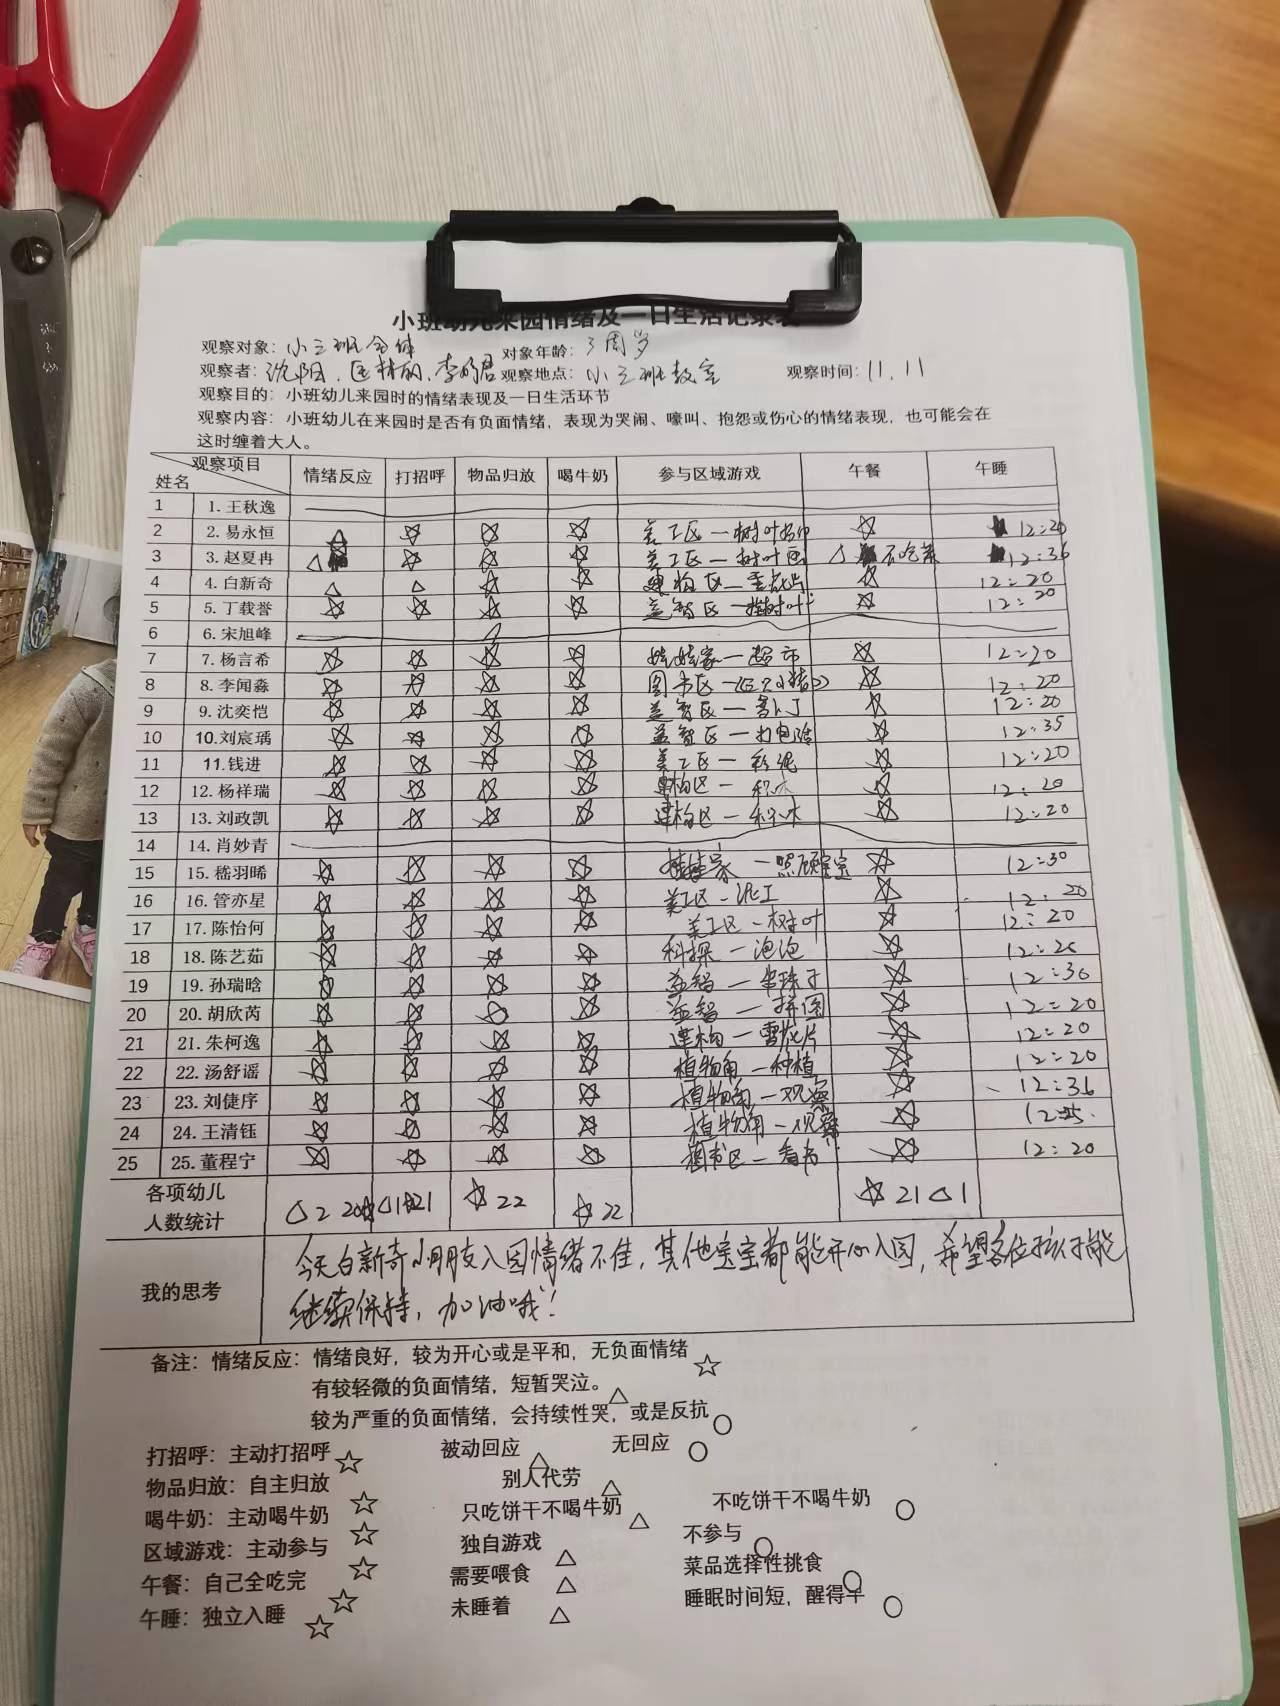 小班幼儿来园情绪及一日生活记录表
观察对象：小三班全体 对象年龄：3周岁
观察者：沈阳、 观察地点：小三班教室 观察时间：11.11
观察目的：小班幼儿来园时的情绪表现及一日生活环节
观察内容：小班幼儿在来园时是否有负面情绪，表现为哭闹、嚎叫、抱怨或伤心的情绪表现，也可能会在
这时缠着大人。
观察项目 姓名 情绪反应 打招呼 物品归放 喝牛奶 参与区域游戏 午餐 午睡
1 1.王秋逸
2 2.易永恒 △ ☆ ☆ ☆ 美工区—树叶拓印 ☆ 12:20
3 3.赵夏冉 △ ☆ ☆ ☆ 美工区—树叶画 △ 不吃菜 12:36
4 4.白新奇 △ △ ☆ ☆ 建构区—雪花片 ☆ 12:20
5 5.丁载誉 ☆ ☆ ☆ ☆ 益智区— ☆ 12:20
6 6.宋旭峰
7 7.杨言希 ☆ ☆ ☆ ☆ 娃娃家—超市 ☆ 12:20
8 8.李闻淼 ☆ ☆ ☆ ☆ 图书区—《三只小猪》 ☆ 12:20
9 9.沈奕恺 ☆ ☆ ☆ ☆ 益智区— ☆ 12:20
10 10.刘宸瑀 ☆ ☆ ☆ ☆ 益智区— ☆ 12:35
11 11.钱进 ☆ ☆ ☆ ☆ 美工区—彩泥 ☆ 12:20
12 12.杨祥瑞 ☆ ☆ ☆ ☆ 建构区—积木 ☆ 12:20
13 13.刘政凯 ☆ ☆ ☆ ☆ 建构区—积木 ☆ 12:20
14 14.肖妙青
15 15.嵇羽晞 ☆ ☆ ☆ ☆ 娃娃家—照顾宝宝 ☆ 12:30
16 16.管亦星 ☆ ☆ ☆ ☆ 美工区—泥工 ☆ 12:20
17 17.陈怡何 ☆ ☆ ☆ ☆ 美工区—树叶 ☆ 12:20
18 18.陈艺茹 ☆ ☆ ☆ ☆ 科探—泡泡 ☆ 12:20
19 19.孙瑞晗 ☆ ☆ ☆ ☆ 益智—串珠子 ☆ 12:30
20 20.胡欣芮 ☆ ☆ ☆ ☆ 益智—拼图 ☆ 12:20
21 21.朱柯逸 ☆ ☆ ☆ ☆ 建构—雪花片 ☆ 12:20
22 22.汤舒谣 ☆ ☆ ☆ ☆ 植物角—种植 ☆ 12:20
23 23.刘倢序 ☆ ☆ ☆ ☆ 植物角—观察 ☆ 12:36
24 24.王清钰 ☆ ☆ ☆ ☆ 植物角—观察 ☆
25 25.董程宁 ☆ ☆ ☆ ☆ 图书区—看书 ☆ 12:20
各项幼儿人数统计 △2 20☆ △1☆21 ☆22 ☆22 ☆21 △1
我的思考 今天白新奇小朋友入园情绪不佳，其他宝宝都能开心入园，希望各位孩子能
继续保持，加油哦！
备注：情绪反应：情绪良好，较为开心或是平和，无负面情绪☆
有较轻微的负面情绪，短暂哭泣。△
较为严重的负面情绪，会持续性哭，或是反抗○
打招呼：主动打招呼☆ 被动回应△ 无回应○
物品归放：自主归放☆ 别人代劳△
喝牛奶：主动喝牛奶☆ 只吃饼干不喝牛奶△ 不吃饼干不喝牛奶○
区域游戏：主动参与☆ 独自游戏△ 不参与○
午餐：自己全吃完☆ 需要喂食△ 菜品选择性挑食○
午睡：独立入睡☆ 未睡着△ 睡眠时间短，醒得早○